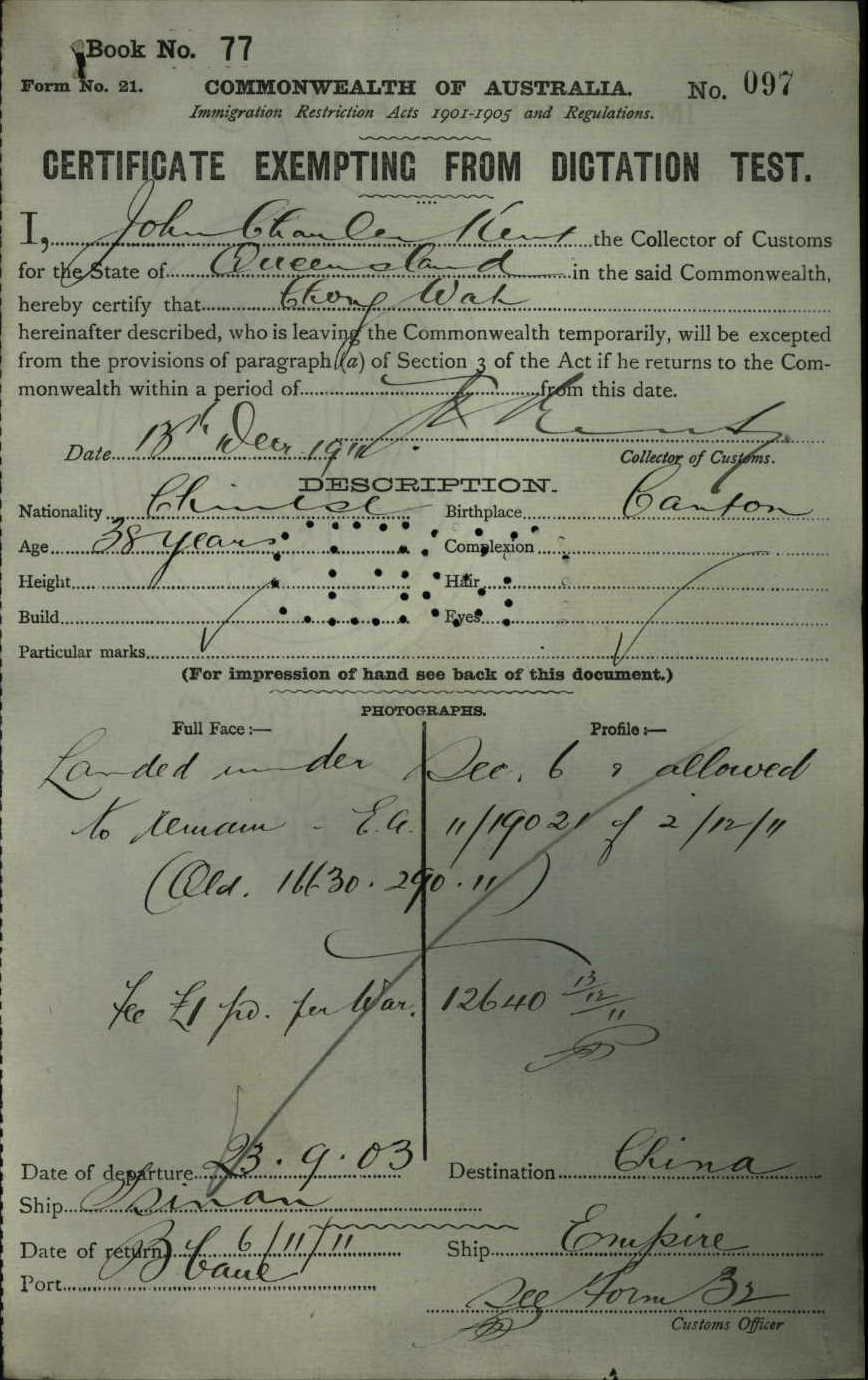 Book No. 77
Form No. 21. COMMONWEALTH OF AUSTRALIA. No. 097
Immigration Restriction Acts 1901-1905 and Regulations.
CERTIFICATE EXEMPTING FROM DICTATION TEST.
I, John Charles Kent the Collector of Customs
for the State of Queensland in the said Commonwealth,
hereby certify that Chong Wah
hereinafter described, who is leaving the Commonwealth temporarily, will be excepted
from the provisions of paragraph (a) of Section 3 of the Act if he returns to the Com-
monwealth within a period of from this date.
Date 13th Decr 1911 Collector of Customs.
DESCRIPTION.
Nationality Chinese Birthplace Canton
Age 38 years Complexion
Height Hair
Build Eyes
Particular marks
(For impression of hand see back of this document.)
PHOTOGRAPHS.
Full Face:— Profile:—
Landed under Sec. 6 & allowed
to remain - E.A. 11/19021 of 2/12/11
(Old. 16630.290.11)
Fee £1 pd. per War. 12640 13/12/11
Date of departure 23.9.03 Destination China
Ship Tsinan
Date of return 6/11/11 Ship Empire
Port B'bane
See Form 32
Customs Officer